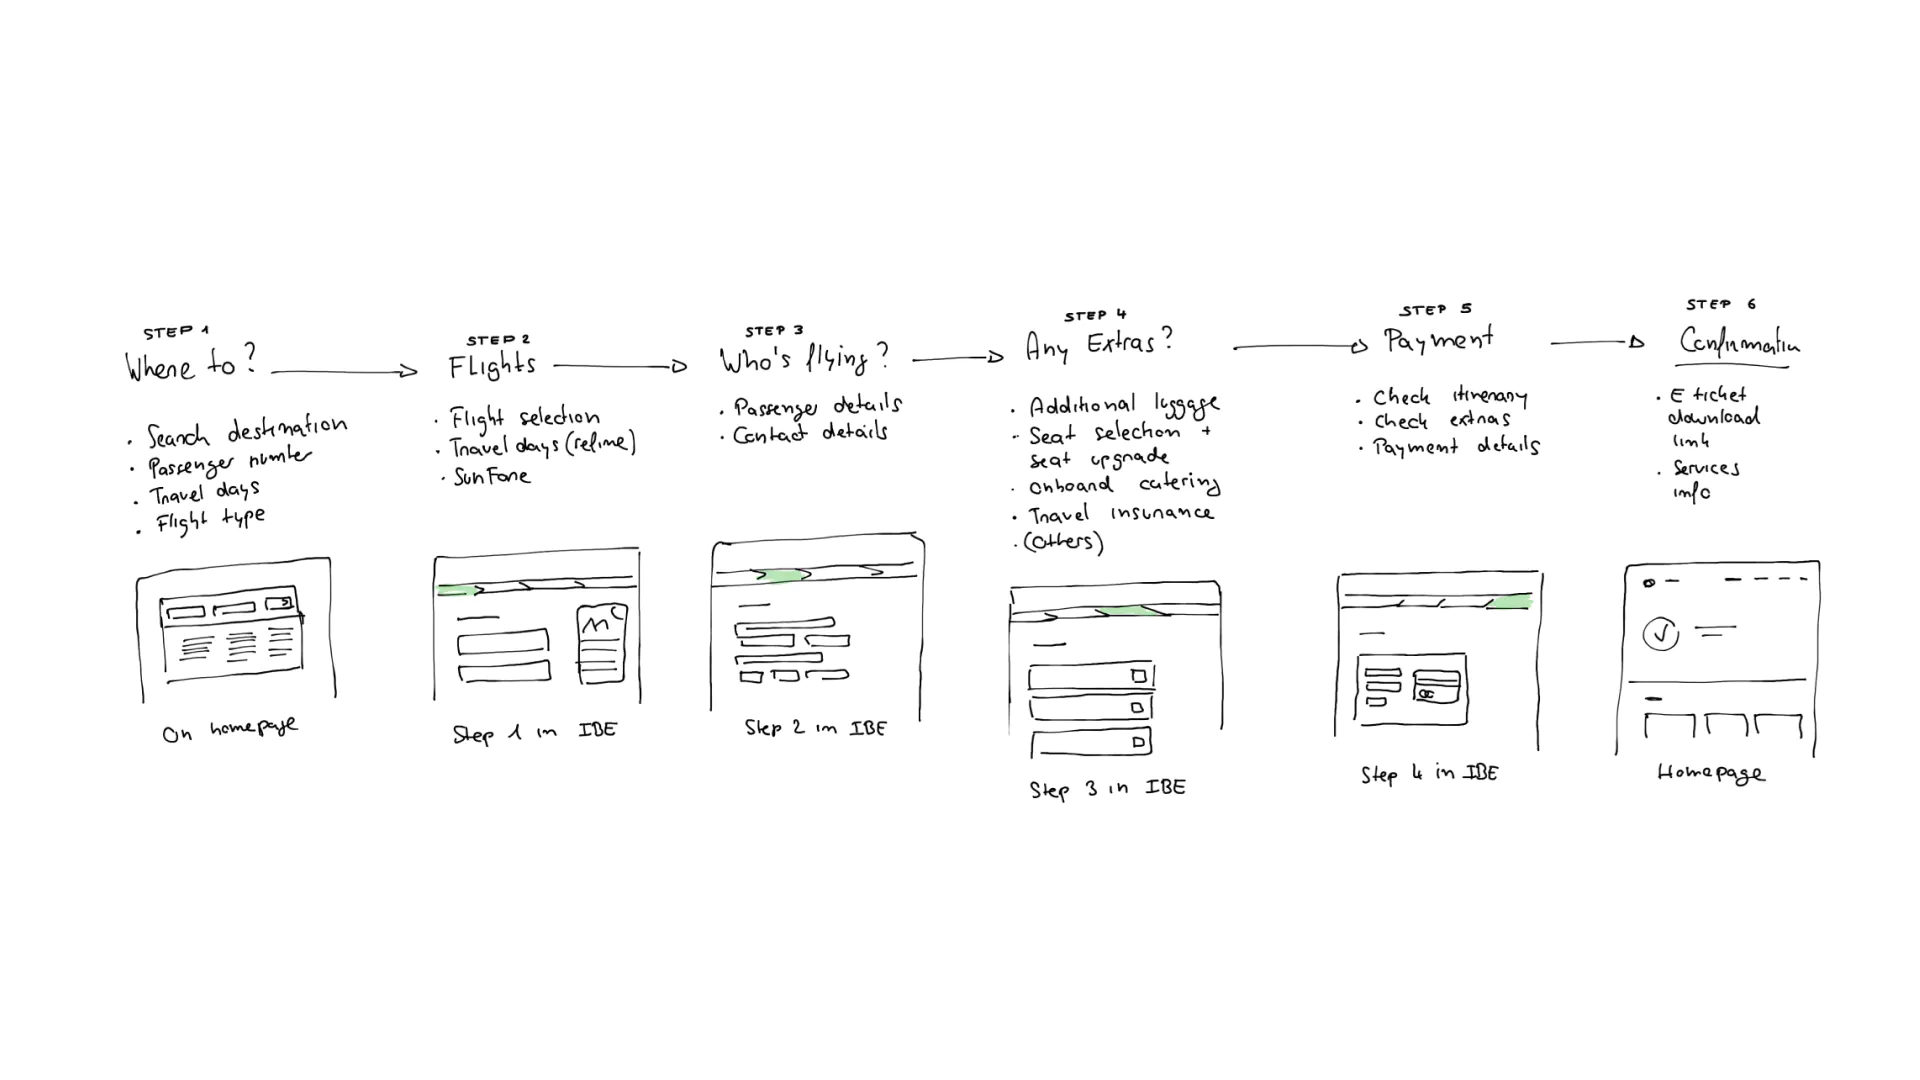 STEP 1
Where to?
• Search destination
• Passenger number
• Travel days
• Flight type
On homepage
STEP 2
Flights
• Flight selection
• Travel days (refine)
• SunFare
Step 1 in IBE
STEP 3
Who's flying?
• Passenger details
• Contact details
Step 2 in IBE
STEP 4
Any Extras?
• Additional luggage
• Seat selection +
seat upgrade
• Onboard catering
• Travel insurance
• (Others)
Step 3 in IBE
STEP 5
Payment
• Check itinerary
• Check extras
• Payment details
Step 4 in IBE
STEP 6
Confirmation
• E ticket
download
link
• Services
info
Homepage